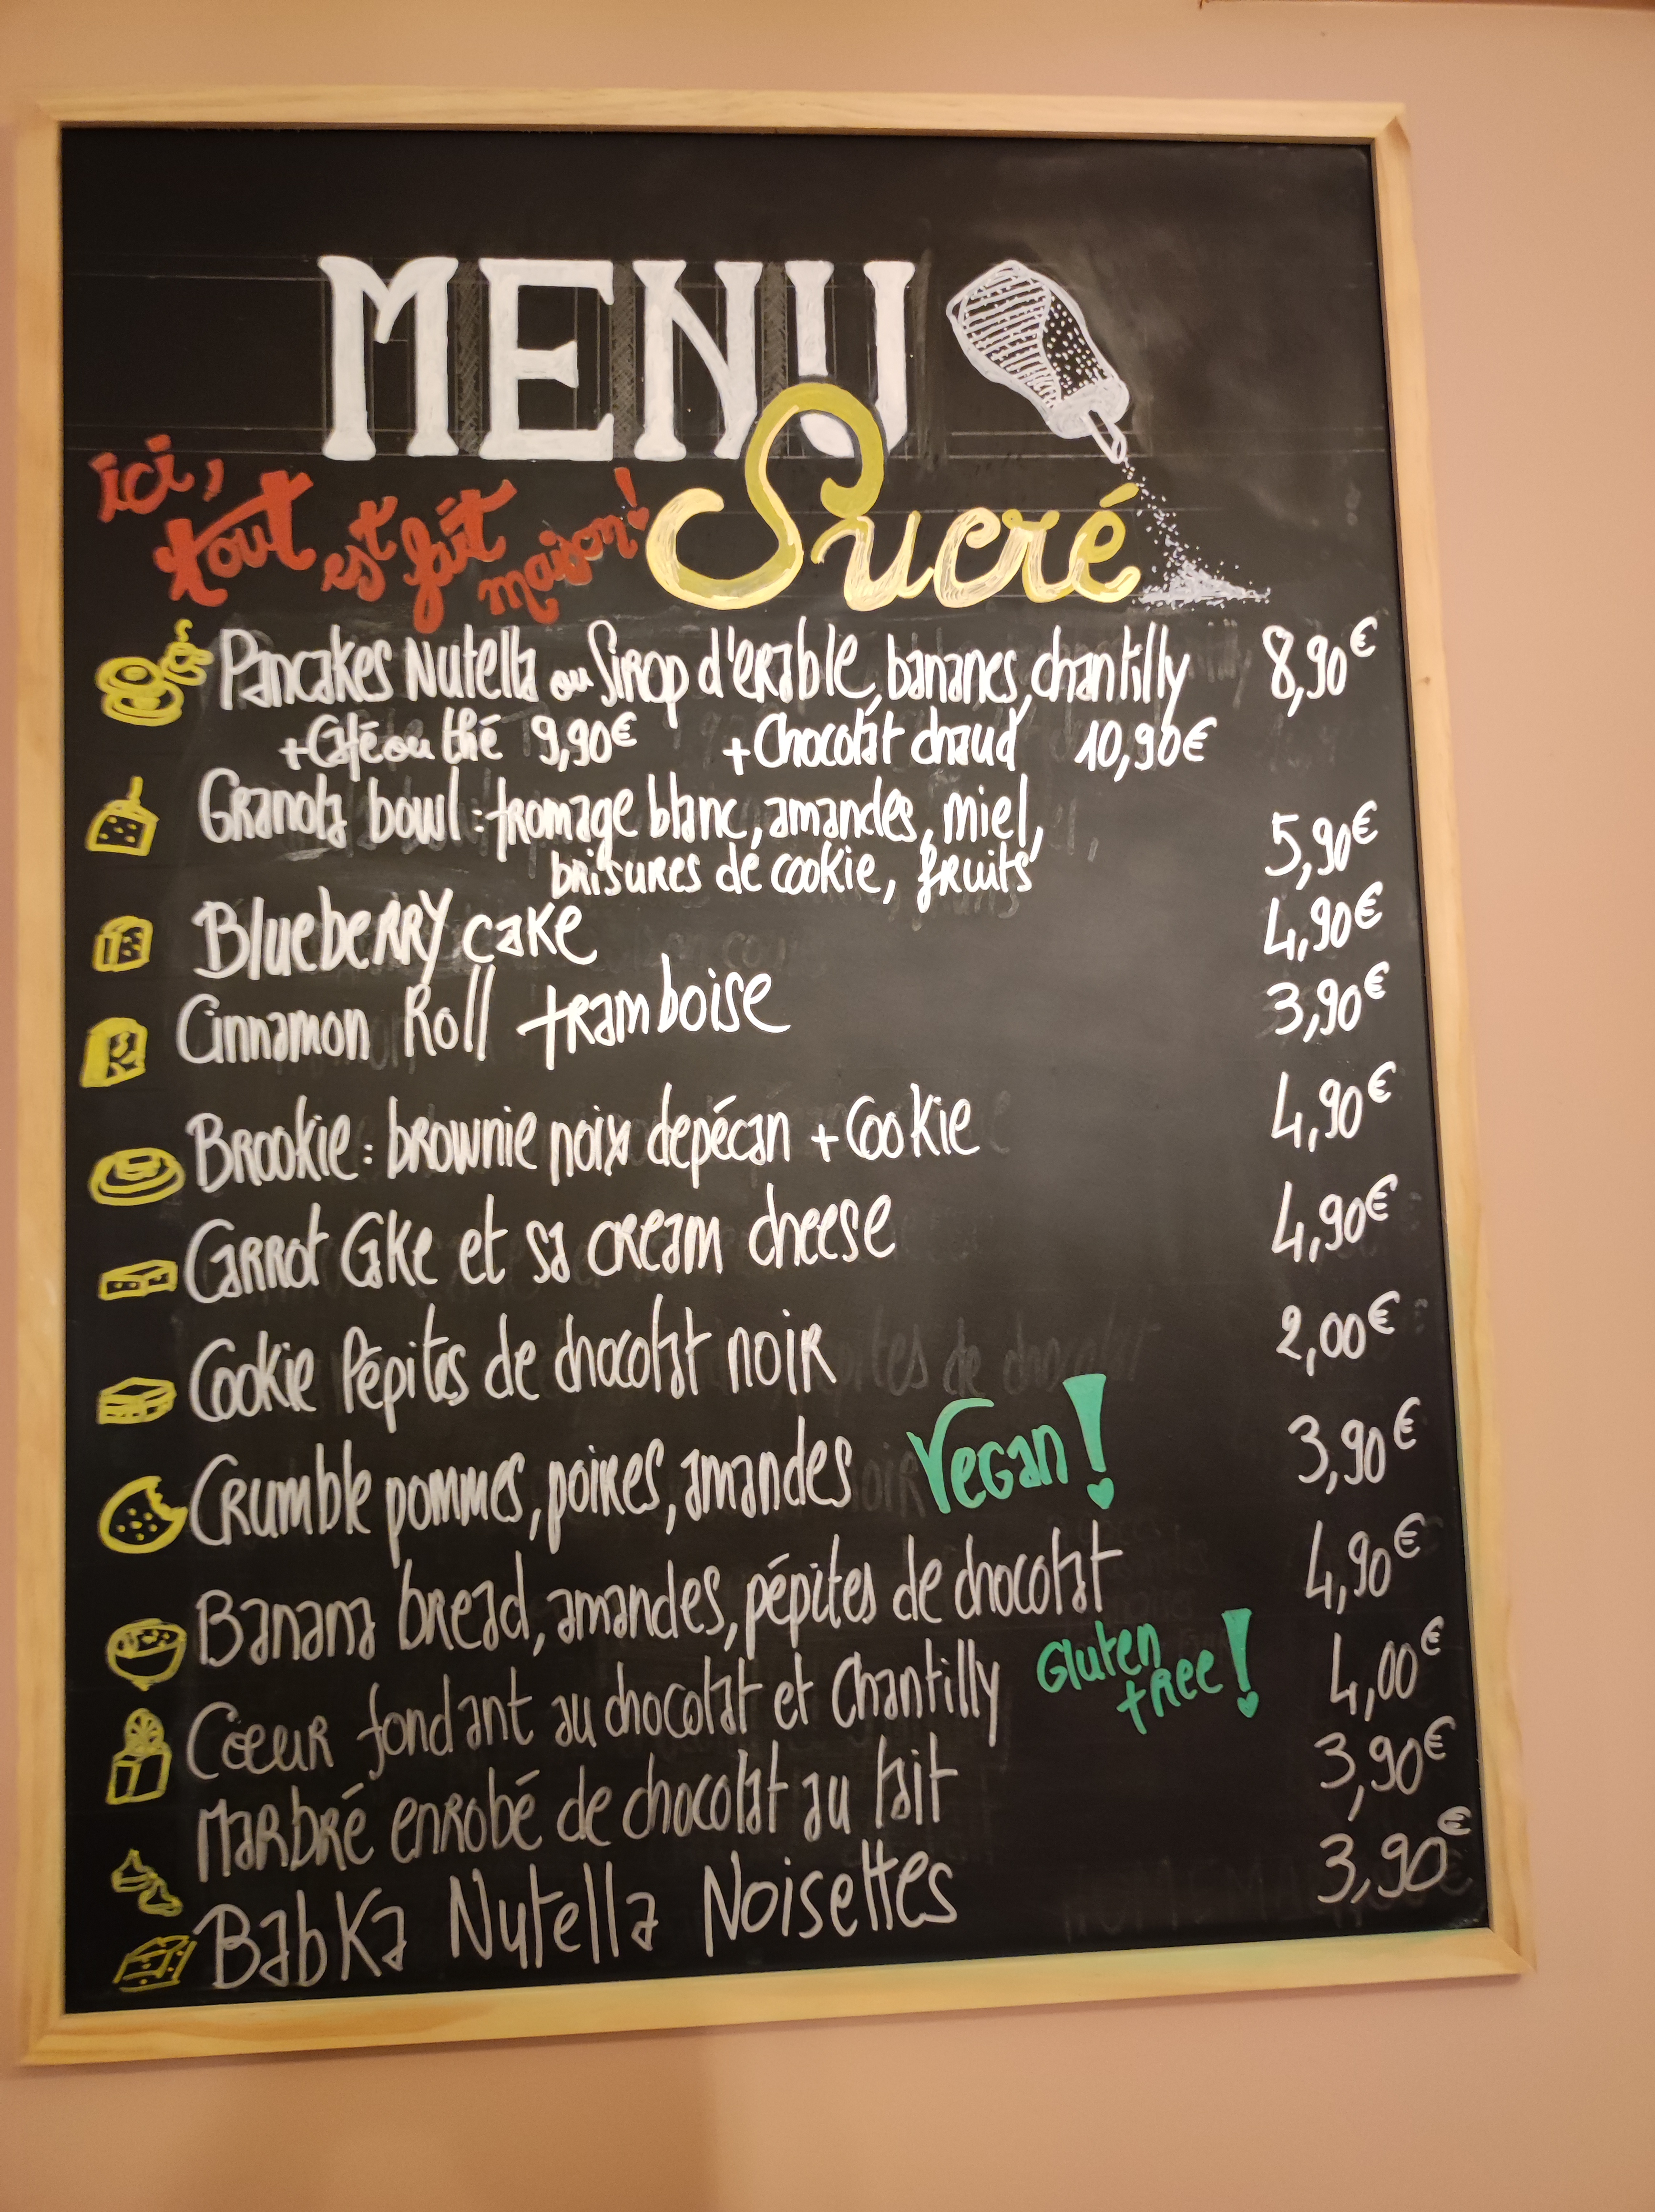 MENU
Sucré
ici,
tout est fait maison!
Pancakes Nutella ou Sirop d'erable, bananes, chantilly 8,90€
+ Café ou thé 9,90€ + Chocolat chaud 10,90€
Granola bowl : fromage blanc, amandes, miel,
brisures de cookie, fruits 5,90€
Blueberry cake 4,90€
Cinnamon Roll framboise 3,90€
Brookie : brownie noix de pécan + Cookie 4,90€
Carrot Cake et sa cream cheese 4,90€
Cookie Pépites de chocolat noir 2,00€
Crumble pommes, poires, amandes Vegan! 3,90€
Banana bread, amandes, pépites de chocolat 4,90€
Coeur fondant au chocolat et Chantilly Gluten free! 4,00€
Marbré enrobé de chocolat au lait 3,90€
Babka Nutella Noisettes 3,90€